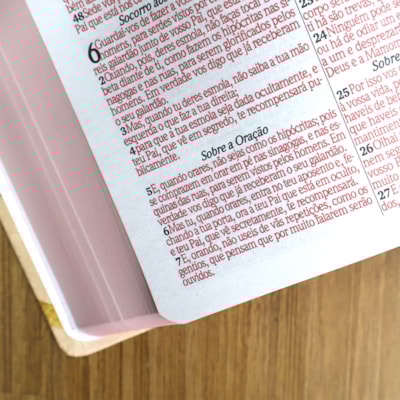 48Sede vós
Pai que está nos
Socorro aos
6 Guardai-vos de fazer a vossa
homens, para serdes vistos por eles;
reis galardão junto de vosso Pai, que está
2Quando, pois, deres esmola, não faças tocar
beta diante de ti, como fazem os hipócritas nas si-
nagogas e nas ruas, para serem glorificados pelos
homens. Em verdade vos digo que já receberam
3Mas, quando tu deres esmola, não saiba a tua mão
esquerda o que faz a tua direita;
4para que a tua esmola seja dada ocultamente, e
teu Pai, que vê em segredo, te recompensará pu-
blicamente.
Sobre a Oração
5E, quando orares, não sejas como os hipócritas; pois
se comprazem em orar em pé nas sinagogas, e nas es-
quinas das ruas, para serem vistos pelos homens. Em
verdade vos digo que já receberam o seu galardão.
6Mas tu, quando orares, entra no teu aposento e, fe-
chando a tua porta, ora a teu Pai que está em oculto;
e teu Pai, que vê secretamente, te recompensará.
7E, orando, não useis de vãs repetições, como os
gentios, que pensam que por muito falarem serão
ouvidos.
23
rão trevas,
24Ninguém pode
ou há de odiar um e
a um e desprezar
Deus e a
Sobre
25Por isso vos
à vossa vida,
haveis de beber
que haveis
mantimento
26Olhai
nem
vosso
27E
dos